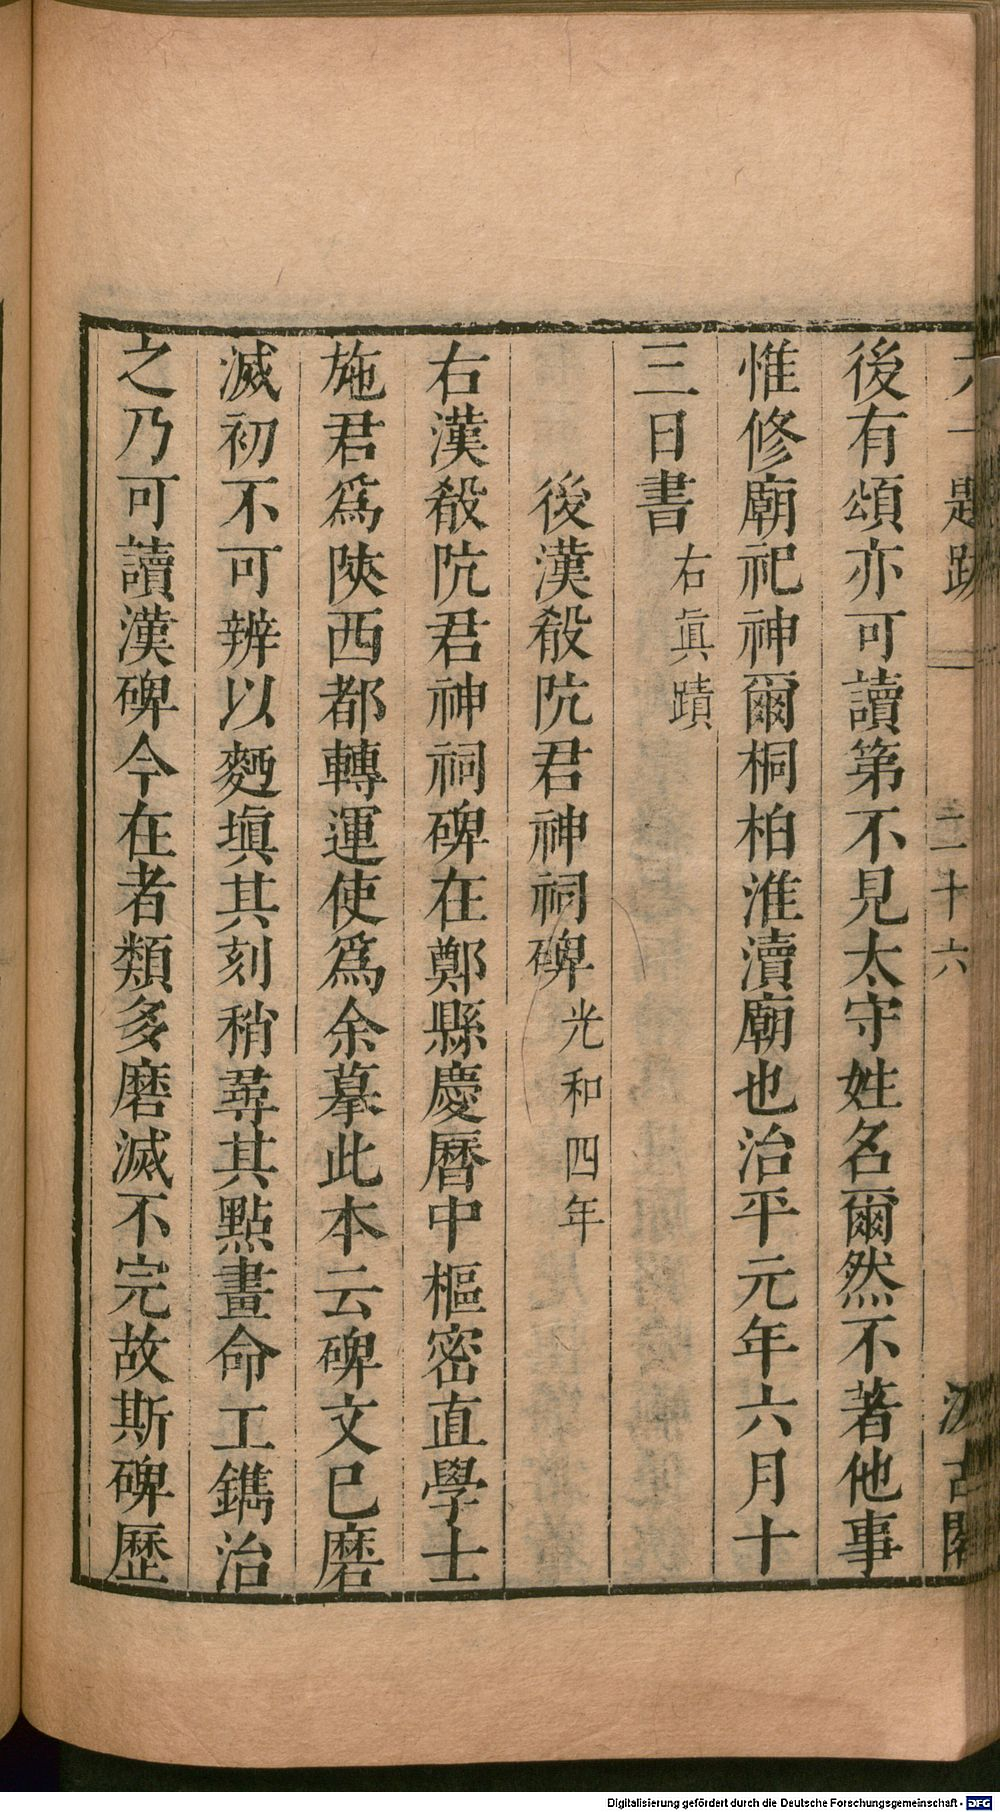 六一題跋
二十六
汲古閣
後有頌亦可讀第不見太守姓名爾然不著他事
惟修廟祀神爾桐柏淮瀆廟也治平元年六月十
三日書 右眞蹟
後漢殽阬君神祠碑 光和四年
右漢殽阬君神祠碑在鄭縣慶曆中樞密直學士
施君爲陝西都轉運使爲余摹此本云碑文已磨
滅初不可辨以麪塡其刻稍尋其點畫命工鐫治
之乃可讀漢碑今在者類多磨滅不完故斯碑歷
Digitalisierung gefördert durch die Deutsche Forschungsgemeinschaft - DFG